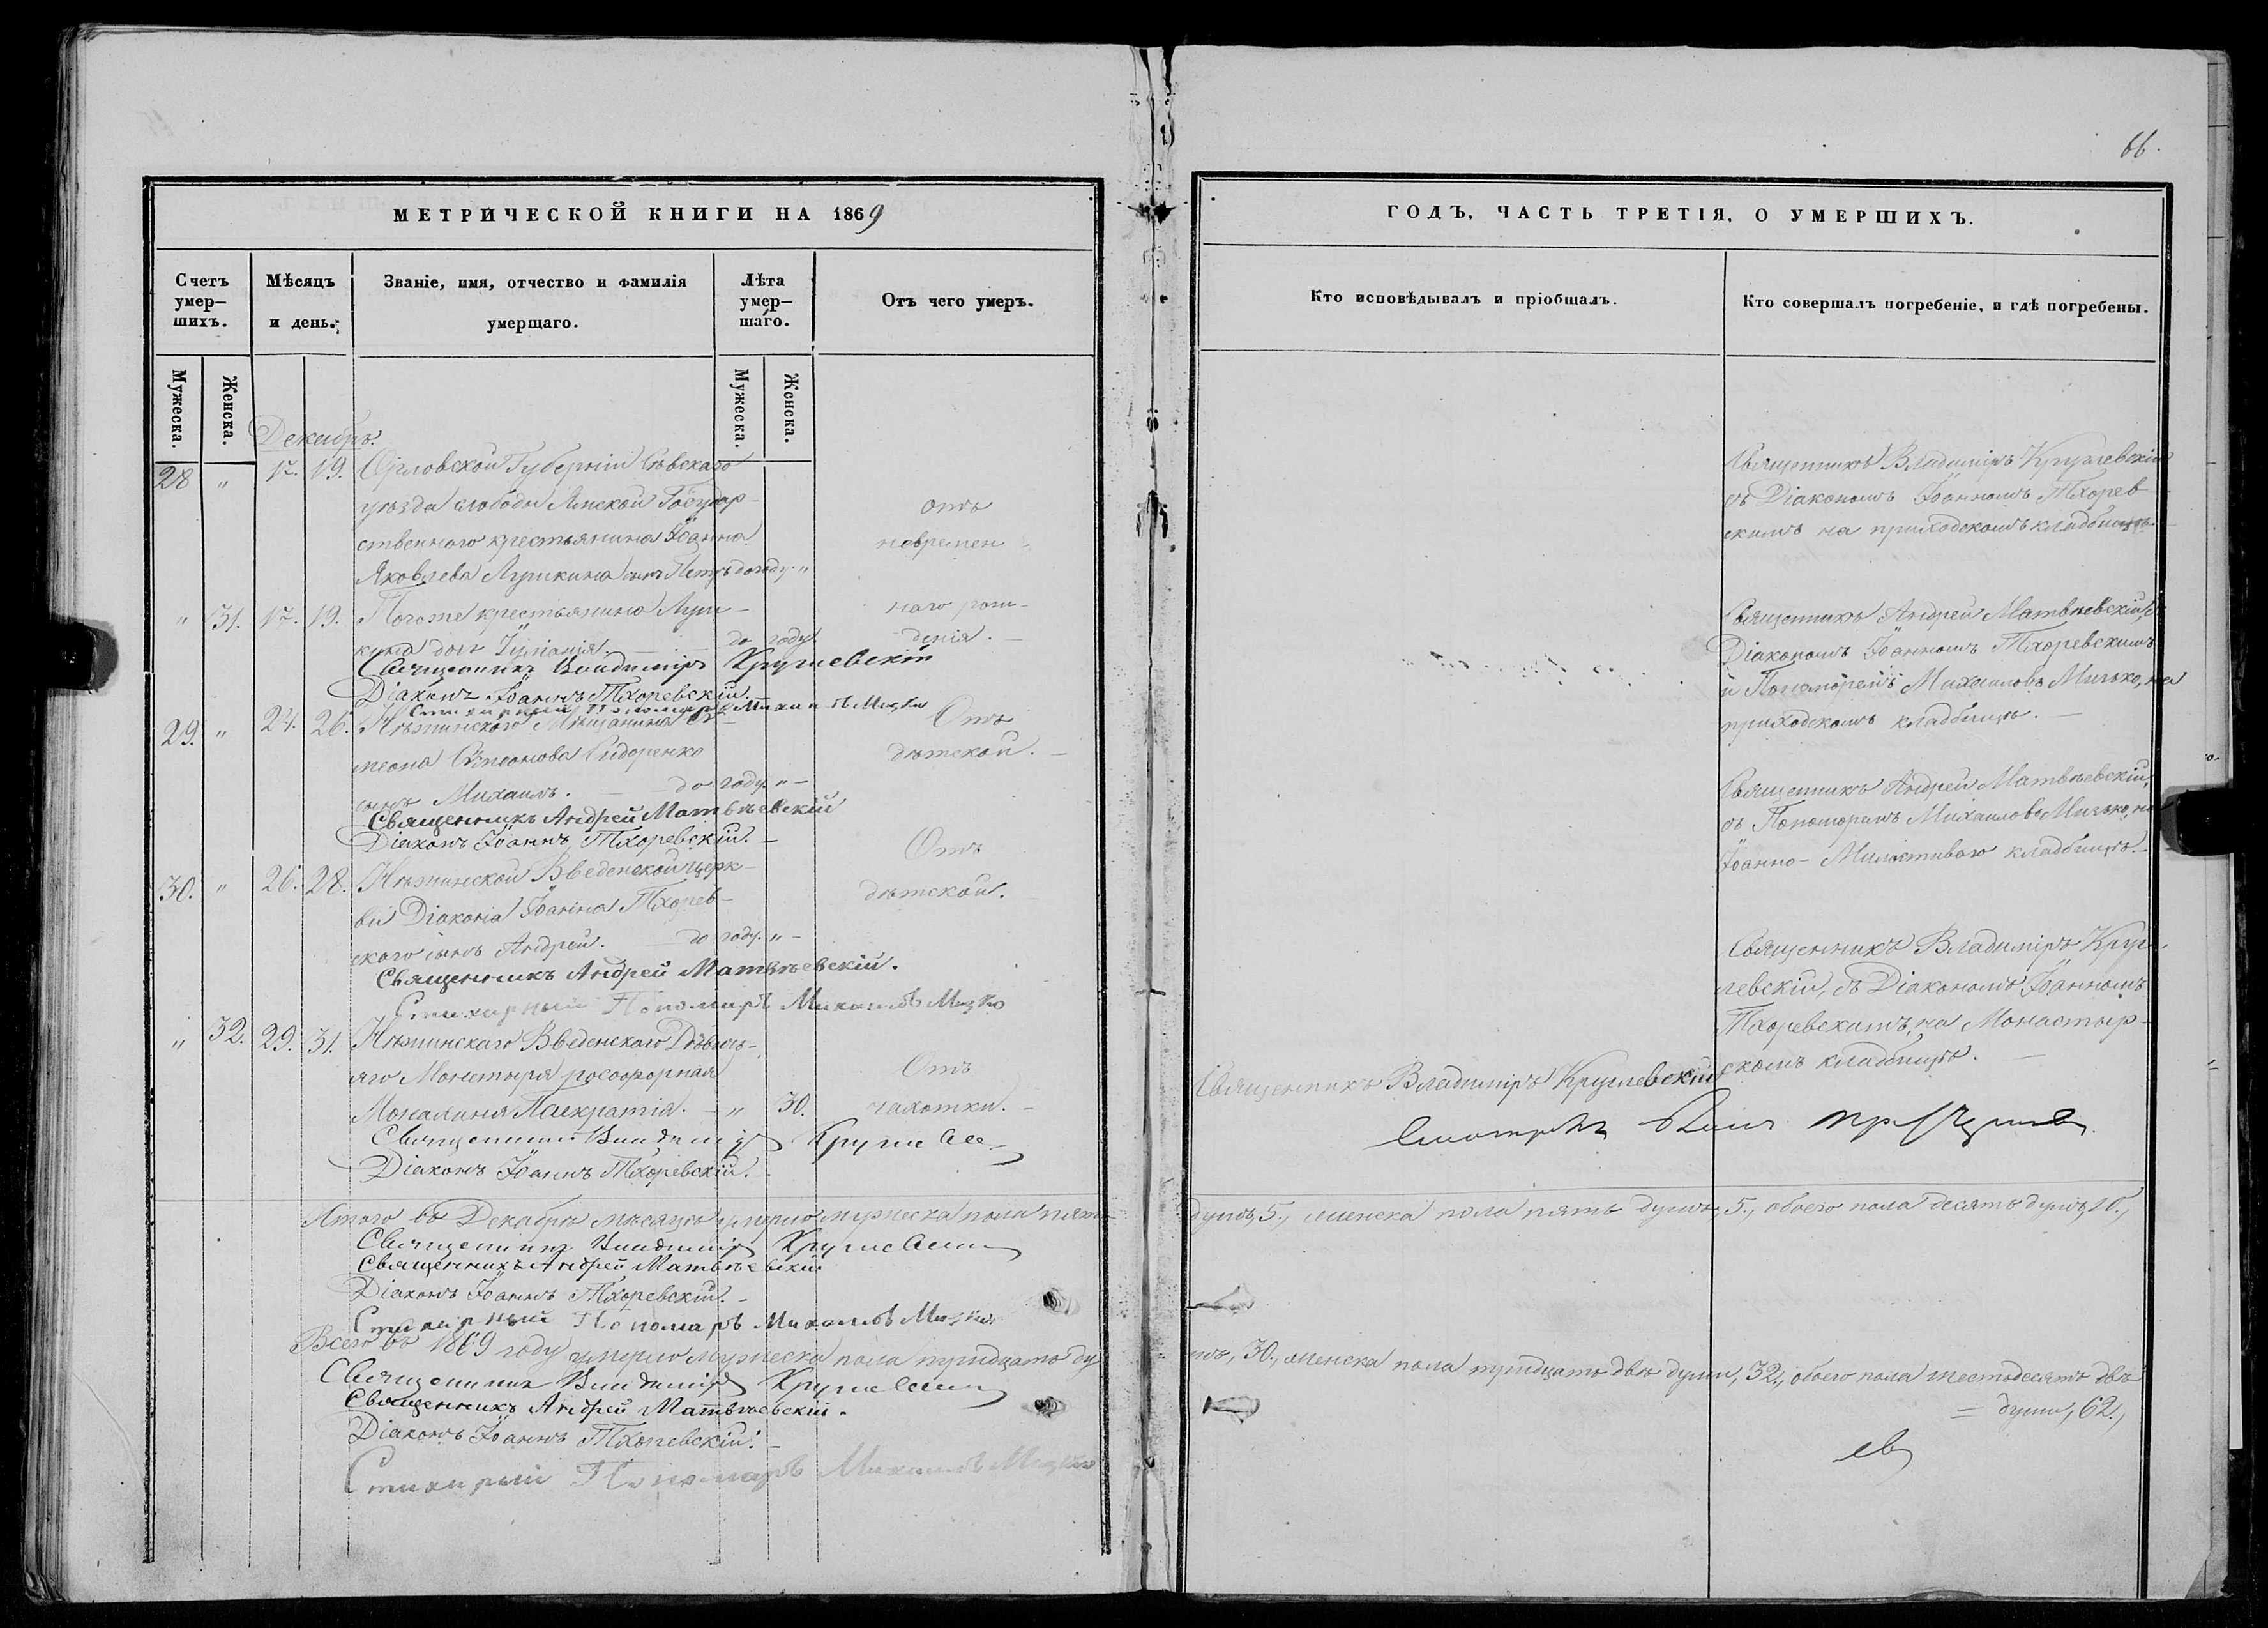 66.
МЕТРИЧЕСКОЙ КНИГИ НА 1869
ГОДЪ, ЧАСТЬ ТРЕТІЯ, О УМЕРШИХЪ.
Счетъ умер–шихъ.
Мѣсяцъ и день.
Званіе, имя, отчество и фамилія умершаго.
Лѣта умер–шаго.
Отъ чего умеръ.
Кто исповѣдывалъ и пріобщалъ.
Кто совершалъ погребеніе, и гдѣ погребены.
Мужеска.
Женска.
Мужеска.
Женска.
Декабрь.
28 " 17. 19. Орловской Губерніи Сѣвскаго
уѣзда слободы Ямской Государ-
ственного крестьянина Іоанна
Яковлева Лушкина сынъ Петръ до году. "
отъ
невремен-
Священникъ Владиміръ Круглевскій
съ Діакономъ Іоанномъ Тхорев-
скимъ на приходскомъ кладбищѣ.
" 31. 17. 19. Тогоже крестьянина Луш-
кина дочь Іуліанія. до году.
наго рож-
денія.
Священникъ Владиміръ Круглевскій
Діаконъ Іоаннъ Тхоревскій.
Стихарный Пономарь Михаилъ Мизко
Священникъ Андрей Матвѣевскій, съ
Діакономъ Іоанномъ Тхоревскимъ
и Пономарем Михаиломъ Мизько, на
приходскомъ кладбищѣ.
29. " 24. 26. Нѣжинского Мещанина Си-
меона Симеонова Сидоренко
сынъ Михаилъ. до году. "
Отъ
дѣтской.
Священникъ Андрей Матвѣевскій
Діаконъ Іоаннъ Тхоревскій.
Священникъ Андрей Матвѣевскій,
съ Пономаремъ Михаиломъ Мизько, на
Іоанно-Милостивого кладбищѣ.
30. " 26. 28. Нѣжинской Введенской церк-
ви Діакона Іоанна Тхорев-
ского сынъ Андрей. до году. "
Отъ
дѣтской.
Священникъ Андрей Матвѣевскій.
Стихарный Пономарь Михаилъ Мизко
Священникъ Владиміръ Круг-
левскій, съ Діакономъ Іоанномъ
Тхоревскимъ, на Монастыр-
скомъ кладбищѣ.
" 32. 29. 31. Нѣжинскаго Введенского Дѣвичь-
яго Монастыря рясофорная
Монахиня Панкратія. " 30.
Отъ
чахотки.
Священникъ Владиміръ Круглевскій
Священникъ Владиміръ
Діаконъ Іоаннъ Тхоревскій.
Итого въ Декабрѣ мѣсяцѣ умерло мужеска пола пять
душъ, 5., женска пола пять душъ, 5., обоего пола десять душъ, 10.,
Священникъ Владиміръ
Священникъ Андрей Матвѣевскій
Діаконъ Іоаннъ Тхоревскій.
Стихарный Пономарь Михаилъ Мизко
Всего въ 1869 году умерло мужеска пола тридцать ду-
шъ, 30., женска пола тридцать двѣ души, 32., обоего пола шестьдесятъ двѣ
души, 62.,
Священникъ Владиміръ
Священникъ Андрей Матвѣевскій.
Діаконъ Іоаннъ Тхоревскій.
Стихарный Пономарь Михаилъ Мизко